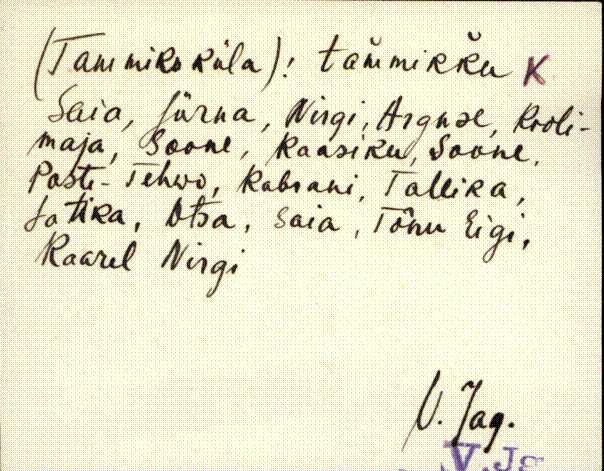 (Tammiku küla): tam̆mikk̆u K
Saia, Jürna, Nirgi, Arguse, Kooli-
maja, Soone, Kaasiku, Soone,
Posti-Tehvo, Kabrani, Tallika,
Jatika, Otsa, Saia, Tõnu Eigi,
Kaarel Nirgi
V. Jag.
V. Ja